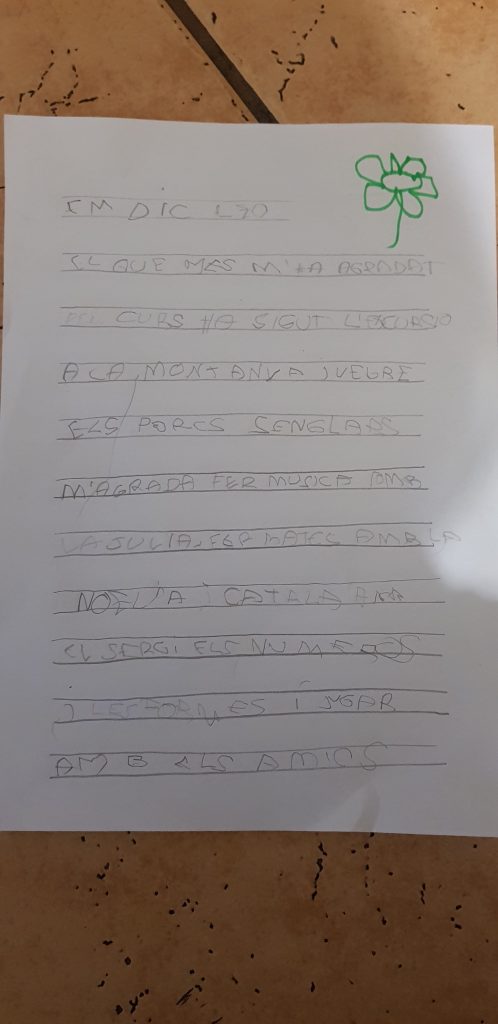 EM DIC LEO
EL QUE MES M'HA AGRADAT
DEL CURS HA SIGUT L'EXCURSIO
A LA MONTANYA I VEURE
ELS PORCS SENGLARS
M'AGRADA FER MUSICA AMB
LA JULIA, FER MATES AMB LA
NOELIA I CATALA AMB
EL SERGI ELS NUMEROS
I LES FORMES I JUGAR
AMB ELS AMICS